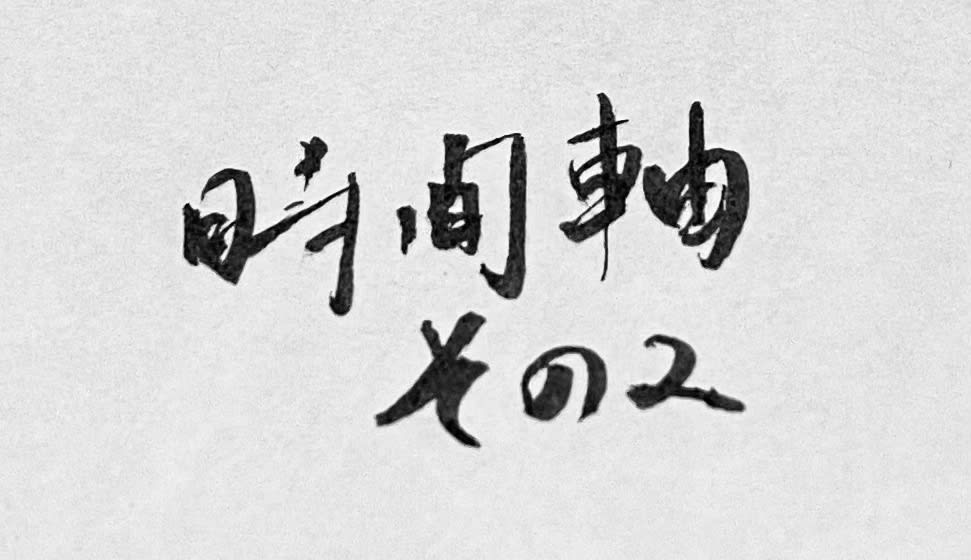 時間軸
その2